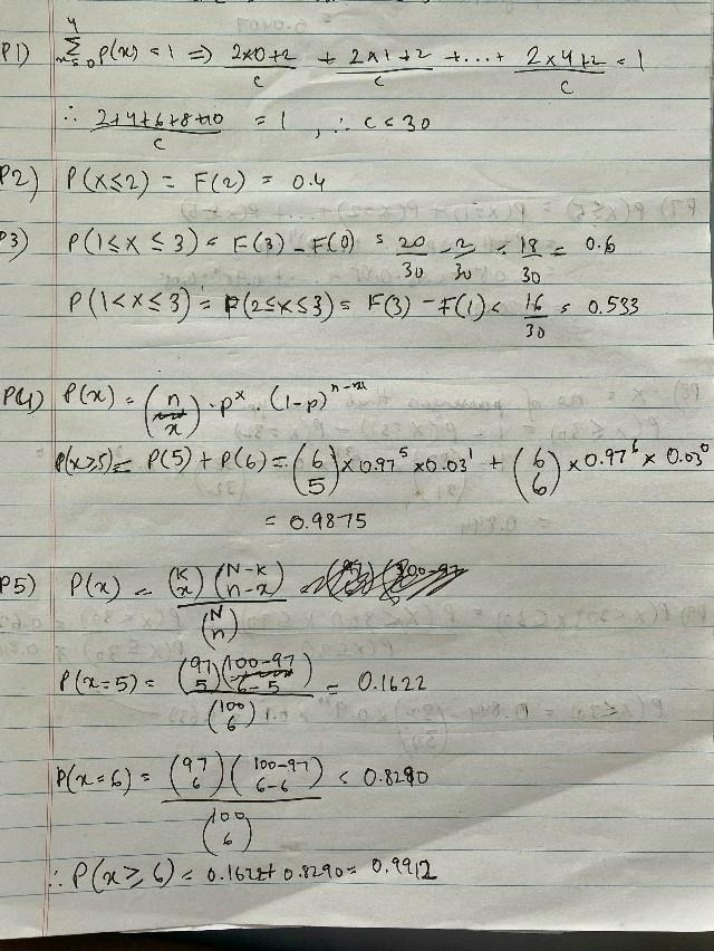 P1) \sum_{x=0}^{4} P(x) = 1 => \frac{2x0+2}{c} + \frac{2x1+2}{c} + ... + \frac{2x4+2}{c} = 1
∴ \frac{2+4+6+8+10}{c} = 1 , ∴ c = 30
P2) P(X≤2) = F(2) = 0.4
P3) P(1≤X≤3) = F(3) - F(0) = \frac{20}{30} - \frac{2}{30} = \frac{18}{30} = 0.6
P(1<X≤3) = P(2≤X≤3) = F(3) - F(1) = \frac{16}{30} = 0.533
P4) P(x) = \binom{n}{x} . p^x . (1-p)^{n-x}
P(x≥5) = P(5) + P(6) = \binom{6}{5} x 0.97^5 x 0.03^1 + \binom{6}{6} x 0.97^6 x 0.03^0
= 0.9875
P5) P(x) = \frac{\binom{K}{x} \binom{N-K}{n-x}}{\binom{N}{n}}
P(x=5) = \frac{\binom{97}{5} \binom{100-97}{6-5}}{\binom{100}{6}} = 0.1622
P(x=6) = \frac{\binom{97}{6} \binom{100-97}{6-6}}{\binom{100}{6}} = 0.8290
∴ P(x≥6) = 0.1622 + 0.8290 = 0.9912